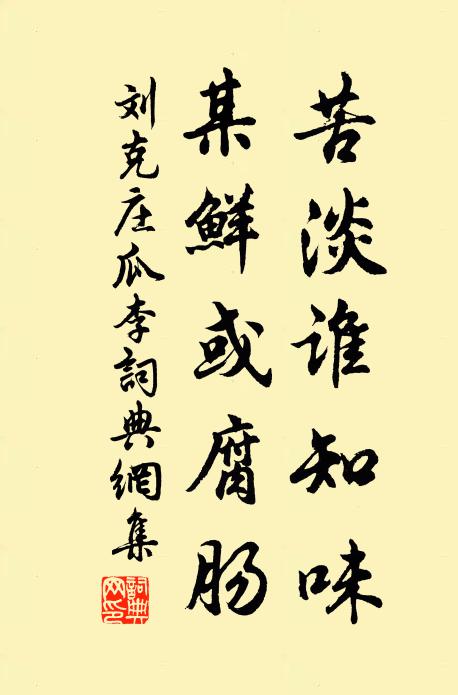 苦淡谁知味
某鲜或腐肠
刘克庄瓜李詞典網集
詞典網印